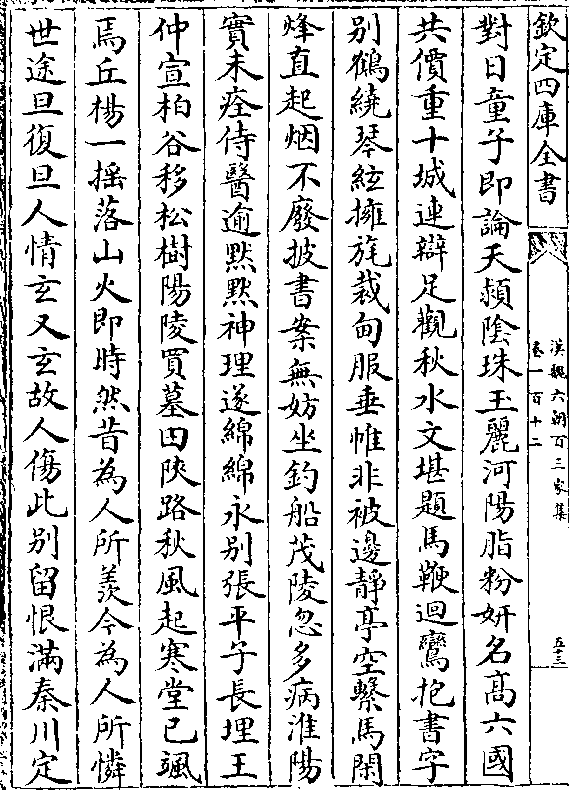 欽定四庫全書
漢魏六朝百三家集
卷一百十二
五十三
對日童子即論天頴陰珠玉麗河陽脂粉妍名髙六國
共價重十城連辯足觀秋水文堪題馬鞭迴鸞抱書字
别鶴繞琴絃擁旄裁甸服垂帷非被邊靜亭空繫馬閑
烽直起烟不廢披書案無妨坐釣船茂陵忽多病淮陽
實未痊侍醫逾黙黙神理遂綿綿永别張平子長埋王
仲宣柏谷移松樹陽陵買墓田陜路秋風起寒堂已颯
焉丘楊一摇落山火即時然昔為人所羡今為人所憐
世途旦復旦人情玄又玄故人傷此别留恨滿秦川定